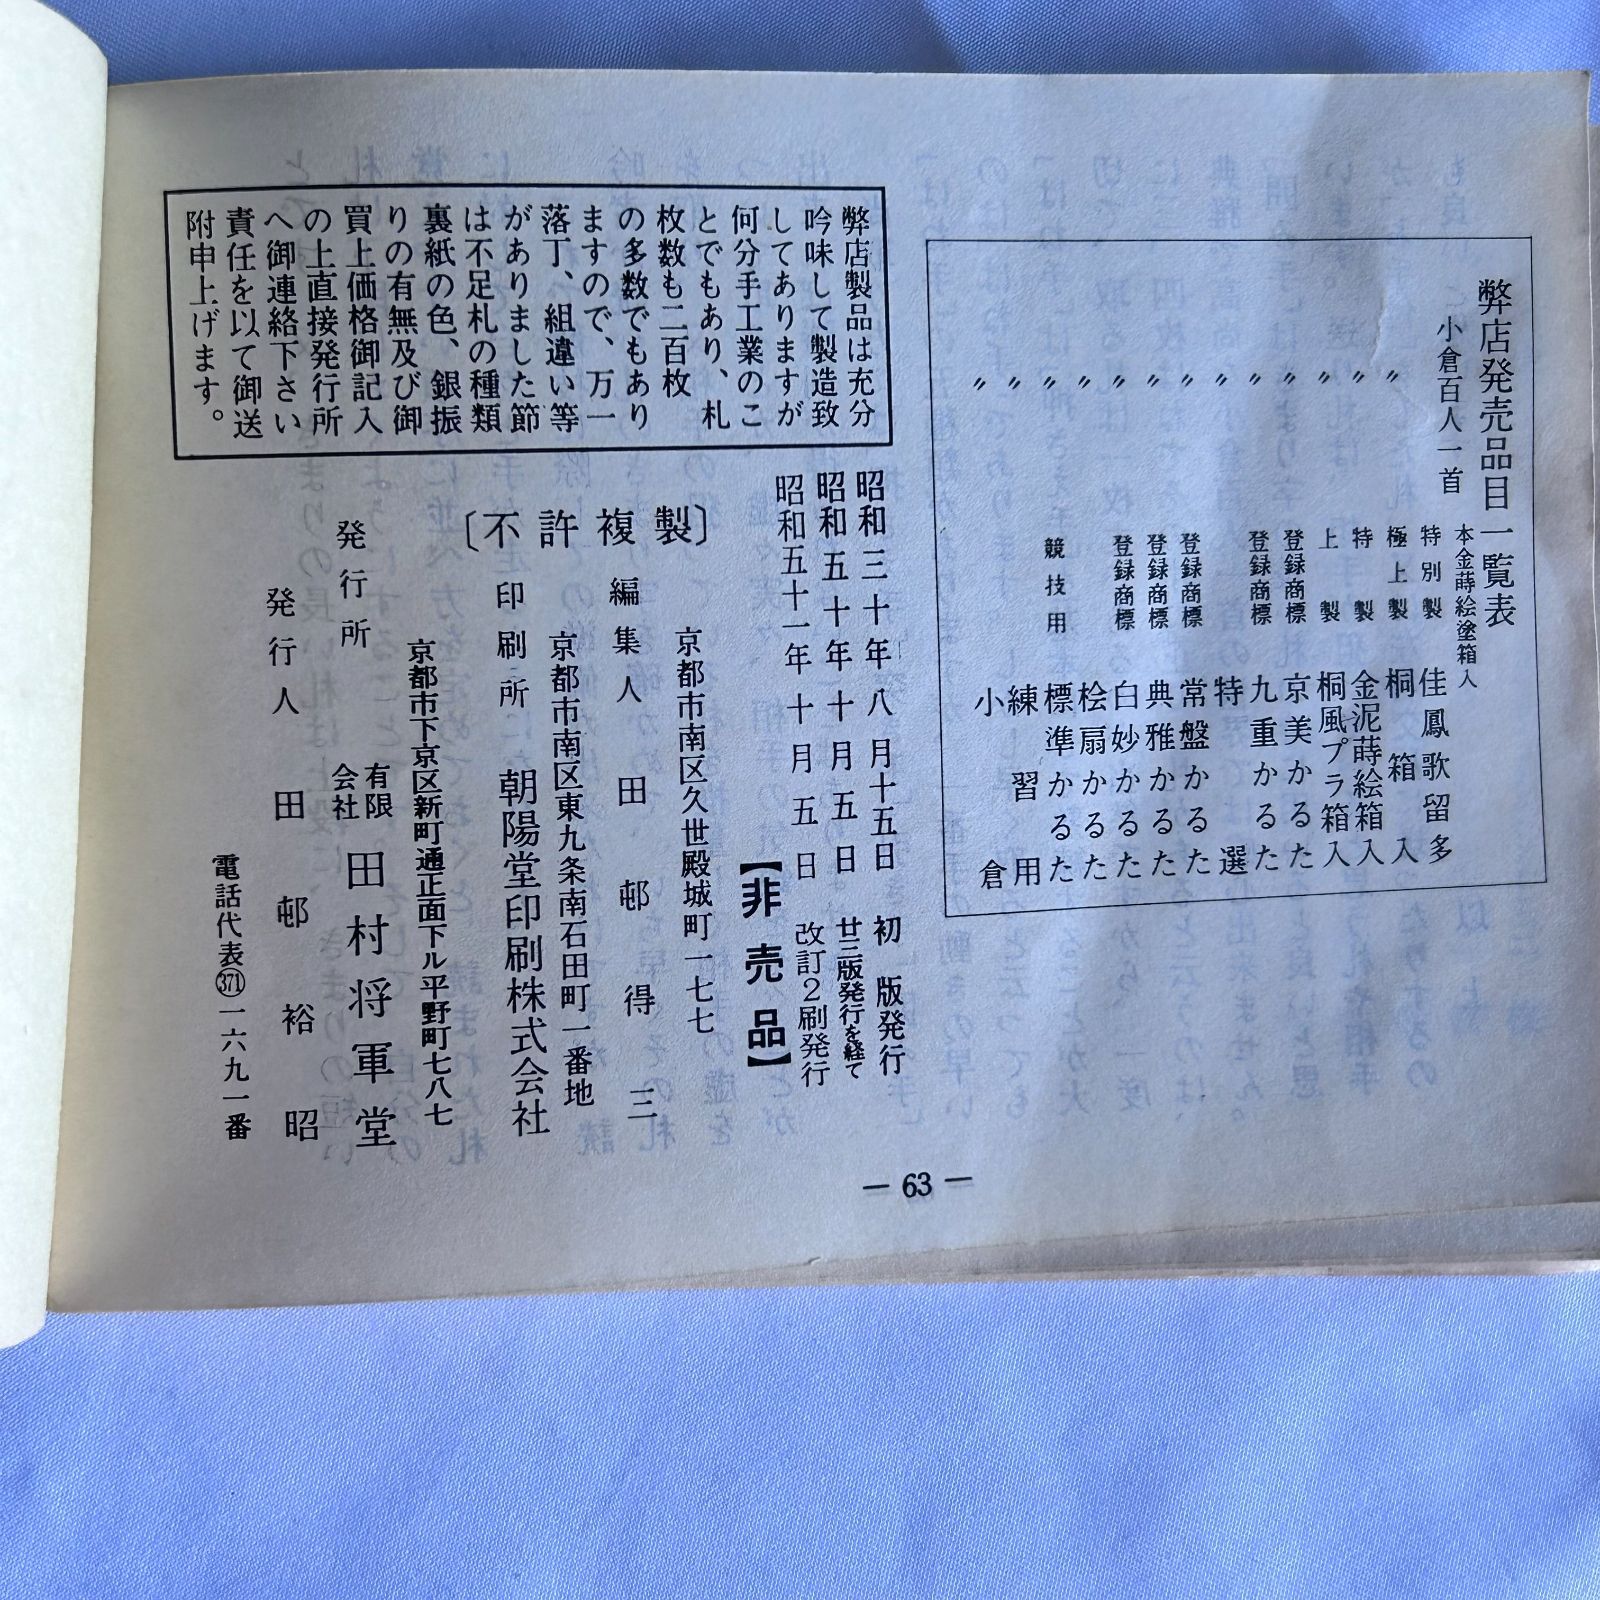 弊店発売品目一覧表
小倉百人一首 本金蒔絵塗箱入
〃 特別製 佳鳳歌留多
〃 極上製 桐箱入
〃 特製 金泥蒔絵箱入
〃 上製 桐風プラ箱入
〃 登録商標 京美かるた
〃 登録商標 九重かるた
〃 特選
〃 登録商標 常盤かるた
〃 登録商標 典雅かるた
〃 登録商標 白妙かるた
〃 桧扇かるた
〃 競技用 標準かるた
〃 練習用
〃 小倉
弊店製品は充分
吟味して製造致
してありますが
何分手工業のこ
とでもあり、札
枚数も二百枚
の多数でもあり
ますので、万一
落丁、組違い等
がありました節
は不足札の種類
裏紙の色、銀振
りの有無及び御
買上価格御記入
の上直接発行所
へ御連絡下さい
責任を以て御送
附申上げます。
昭和三十年八月十五日 初版発行
昭和五十年十月五日 廿三版発行を経て
昭和五十一年十月五日 改訂2刷発行
【非売品】
〔不許複製〕
京都市南区久世殿城町一七七
編集人 田邨得三
京都市南区東九条南石田町一番地
印刷所 朝陽堂印刷株式会社
京都市下京区新町通正面下ル平野町七八七
発行所 有限会社 田村将軍堂
発行人 田邨裕昭
電話代表(371)一六九一番
— 63 —